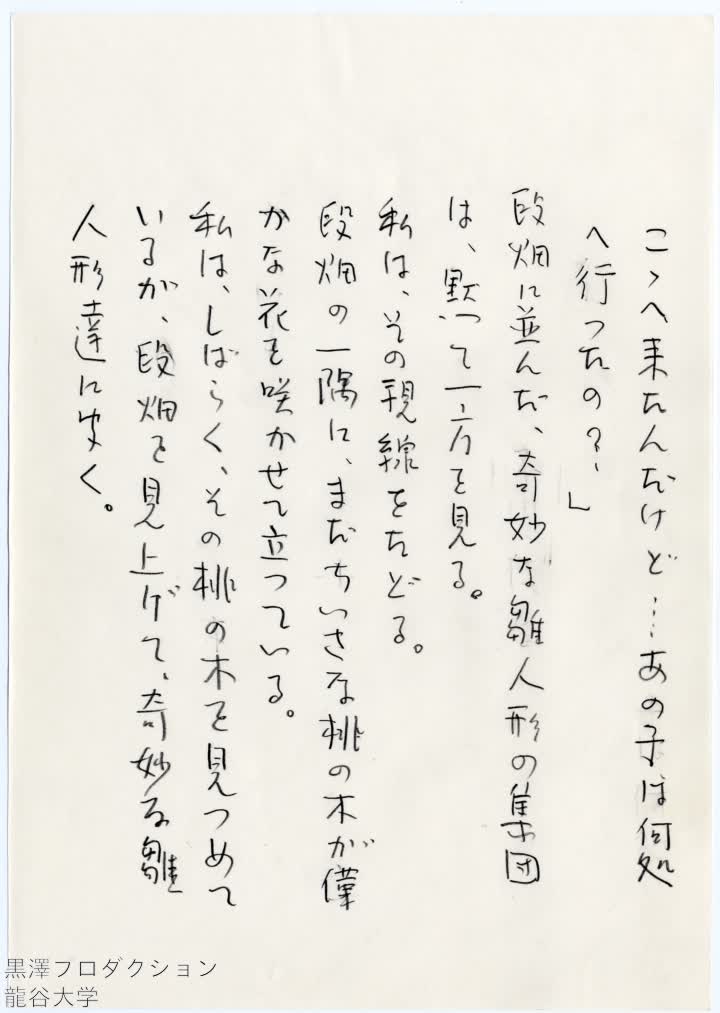 こゝへ来たんだけど…あの子は何処
へ行ったの？」
段畑に並んだ、奇妙な雛人形の集団
は、黙って一方を見る。
私は、その視線をたどる。
段畑の一隅に、まだちいさな桃の木が僅
かな花を咲かせて立っている。
私は、しばらく、その桃の木を見つめて
いるが、段畑を見上げて、奇妙な雛
人形達に聞く。
黒澤プロダクション
龍谷大学